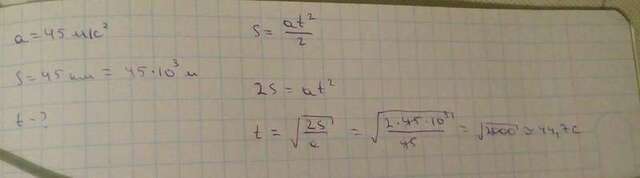 a = 45 м/с²
S = 45 км = 45·10³ м
t - ?
S = at²/2
2S = at²
t = √(2S/a) = √(2·45·10³/45) = √2000 ≈ 44,7 с